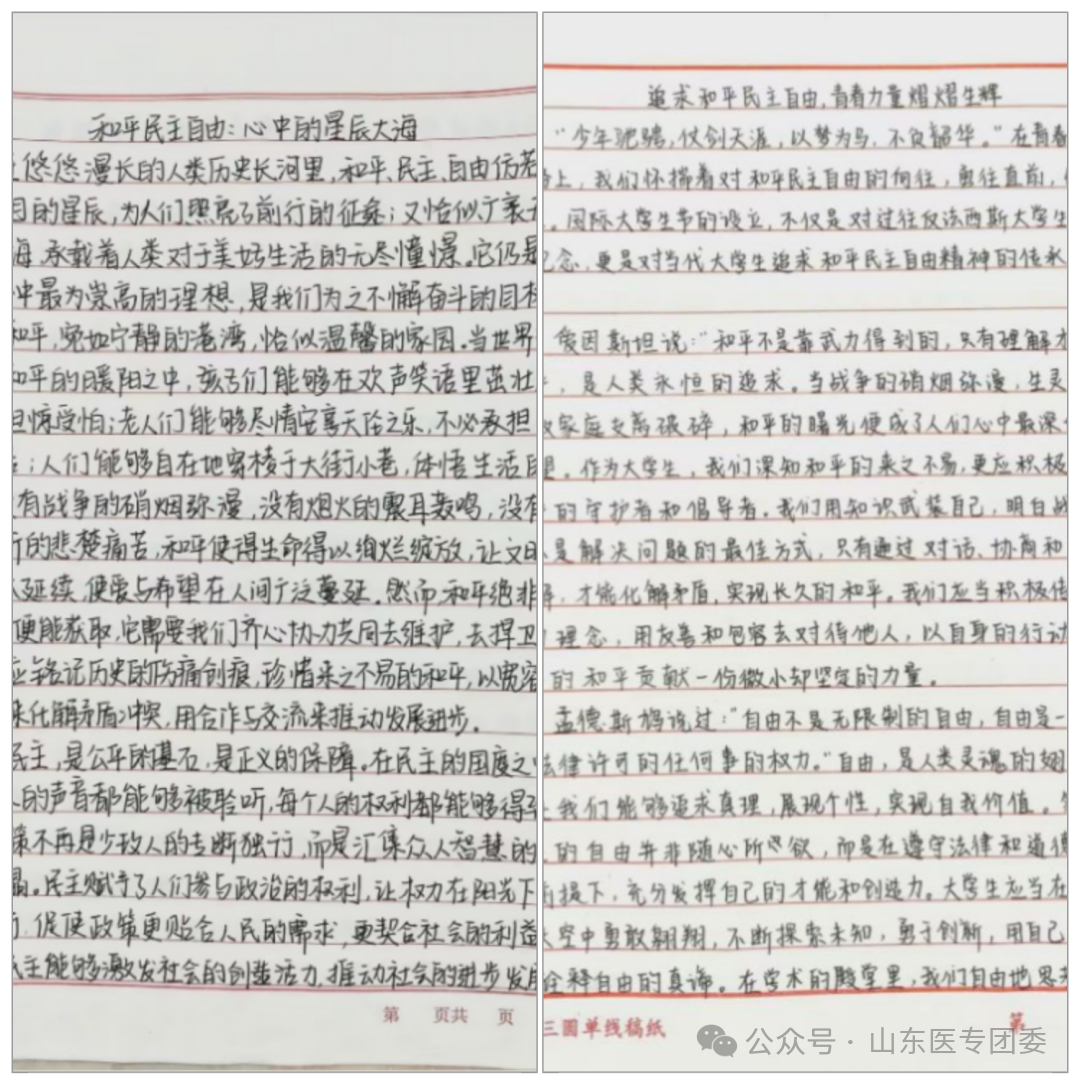 和平民主自由：心中的星辰大海
悠悠漫长的人类历史长河里，和平、民主、自由仿若
目的星辰，为人们照亮了前行的征途；又恰似广袤无
海，承载着人类对于美好生活的无尽憧憬。它仍是
中最为崇高的理想，是我们为之不懈奋斗的目标
和平，宛如宁静的港湾，恰似温馨的家园。当世界
和平的暖阳之中，孩子们能够在欢声笑语里茁壮
担惊受怕；老人们能够尽情安享天伦之乐，不必承担
；人们能够自在地穿梭于大街小巷，体悟生活的
有战争的硝烟弥漫，没有炮火的震耳轰鸣，没有
所的悲楚痛苦，和平使得生命得以绚烂绽放，让文明
延续，使爱与希望在人间广泛蔓延。然而，和平绝非
便能获取，它需要我们齐心协力共同去维护，去捍卫
应铭记历史的伤痛创痕，珍惜来之不易的和平，以宽容
来化解矛盾冲突，用合作与交流来推动发展进步。
民主，是公平的基石，是正义的保障。在民主的国度之
人的声音都能够被聆听，每个人的权利都能够得到
策不再是少数人的专断独行，而是汇集众人智慧的
晶。民主赋予了人们参与政治的权利，让权力在阳光下
，促使政策更贴合人民的需求，更契合社会的利益
民主能够激发社会的创造活力，推动社会的进步发展
第 页共 页
追求和平民主自由，青春力量熠熠生辉
“今年驰骋，仗剑天涯，以梦为马，不负韶华。”在青春
上，我们怀揣着对和平民主自由的向往，勇往直前，
。国际大学生节的设立，不仅是对过往反法西斯大学生
纪念，更是对当代大学生追求和平民主自由精神的传承
爱因斯坦说：“和平不是靠武力得到的，只有理解才
，是人类永恒的追求。当战争的硝烟弥漫，生灵
家庭支离破碎，和平的曙光便成了人们心中最深
。作为大学生，我们深知和平的来之不易，更应积极
的守护者和倡导者。我们用知识武装自己，明白战
是解决问题的最佳方式，只有通过对话、协商和
，才能化解矛盾，实现长久的和平。我们应当积极传
理念，用友善和包容去对待他人，以自身的行动
的和平贡献一份微小却坚定的力量。
孟德斯鸠说过：“自由不是无限制的自由，自由是一
法律许可的任何事的权力。”自由，是人类灵魂的翅
让我们能够追求真理，展现个性，实现自我价值。
的自由并非随心所欲，而是在遵守法律和道德
前提下，充分发挥自己的才能和创造力。大学生应当在
天空中勇敢翱翔，不断探索未知，勇于创新，用自己
诠释自由的真谛。在学术的殿堂里，我们自由地思考
三圆单线稿纸
第
公众号·山东医专团委